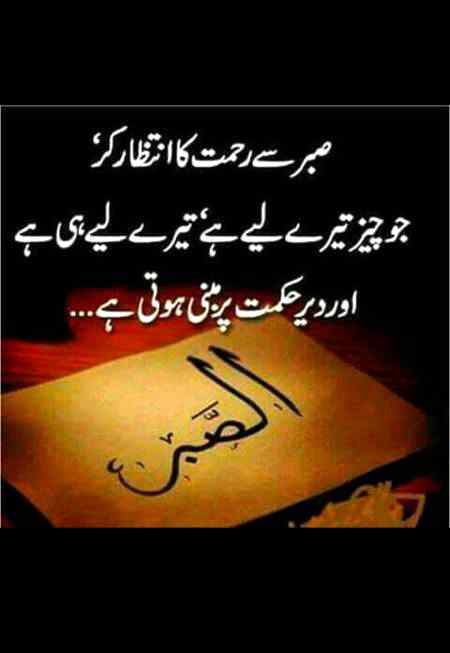 صبر سے رحمت کا انتظار کر،
جو چیز تیرے لیے ہے، تیرے لیے ہی ہے
اور دیر حکمت پر مبنی ہوتی ہے...
الصَّبر